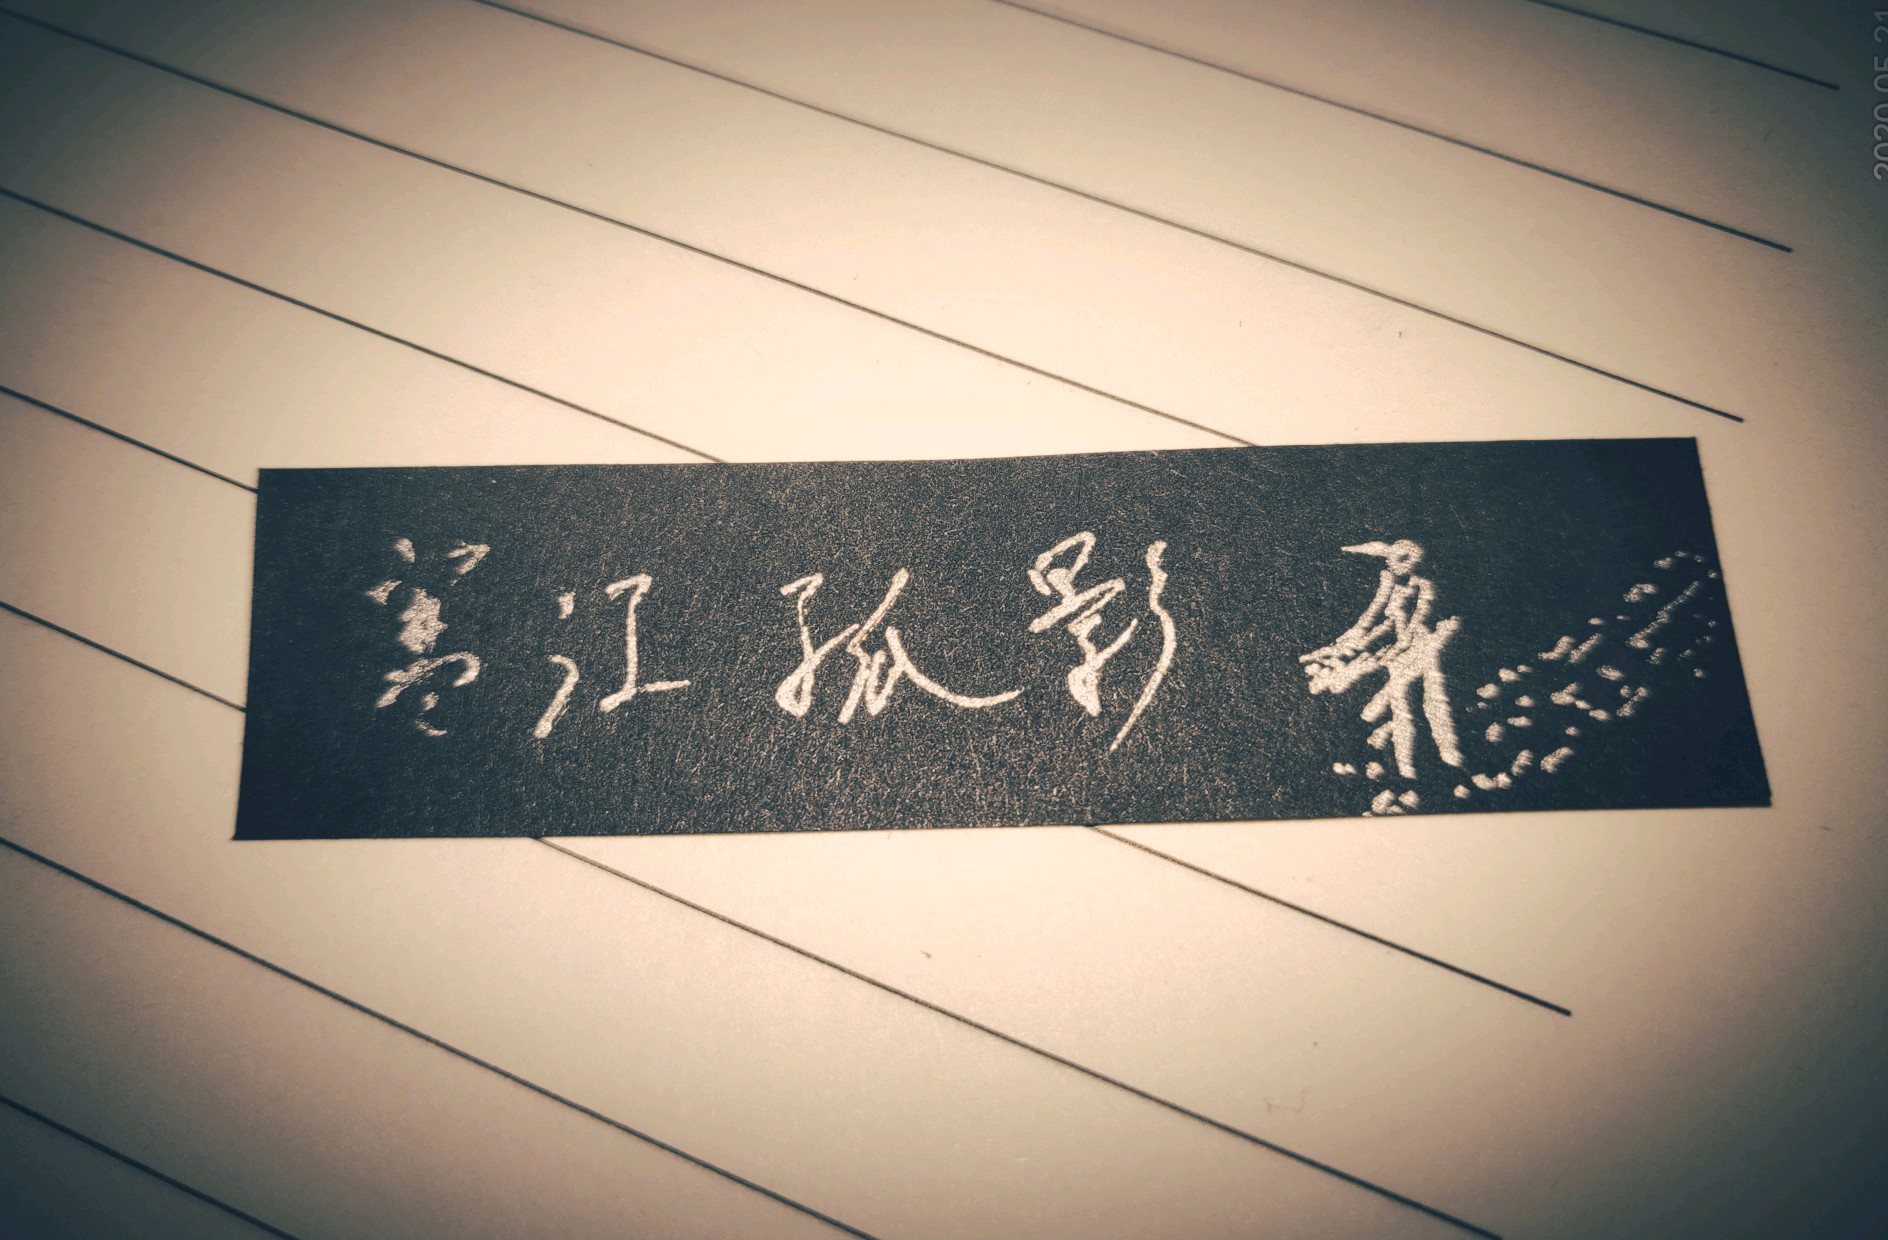 寒江孤影
2020.05.21